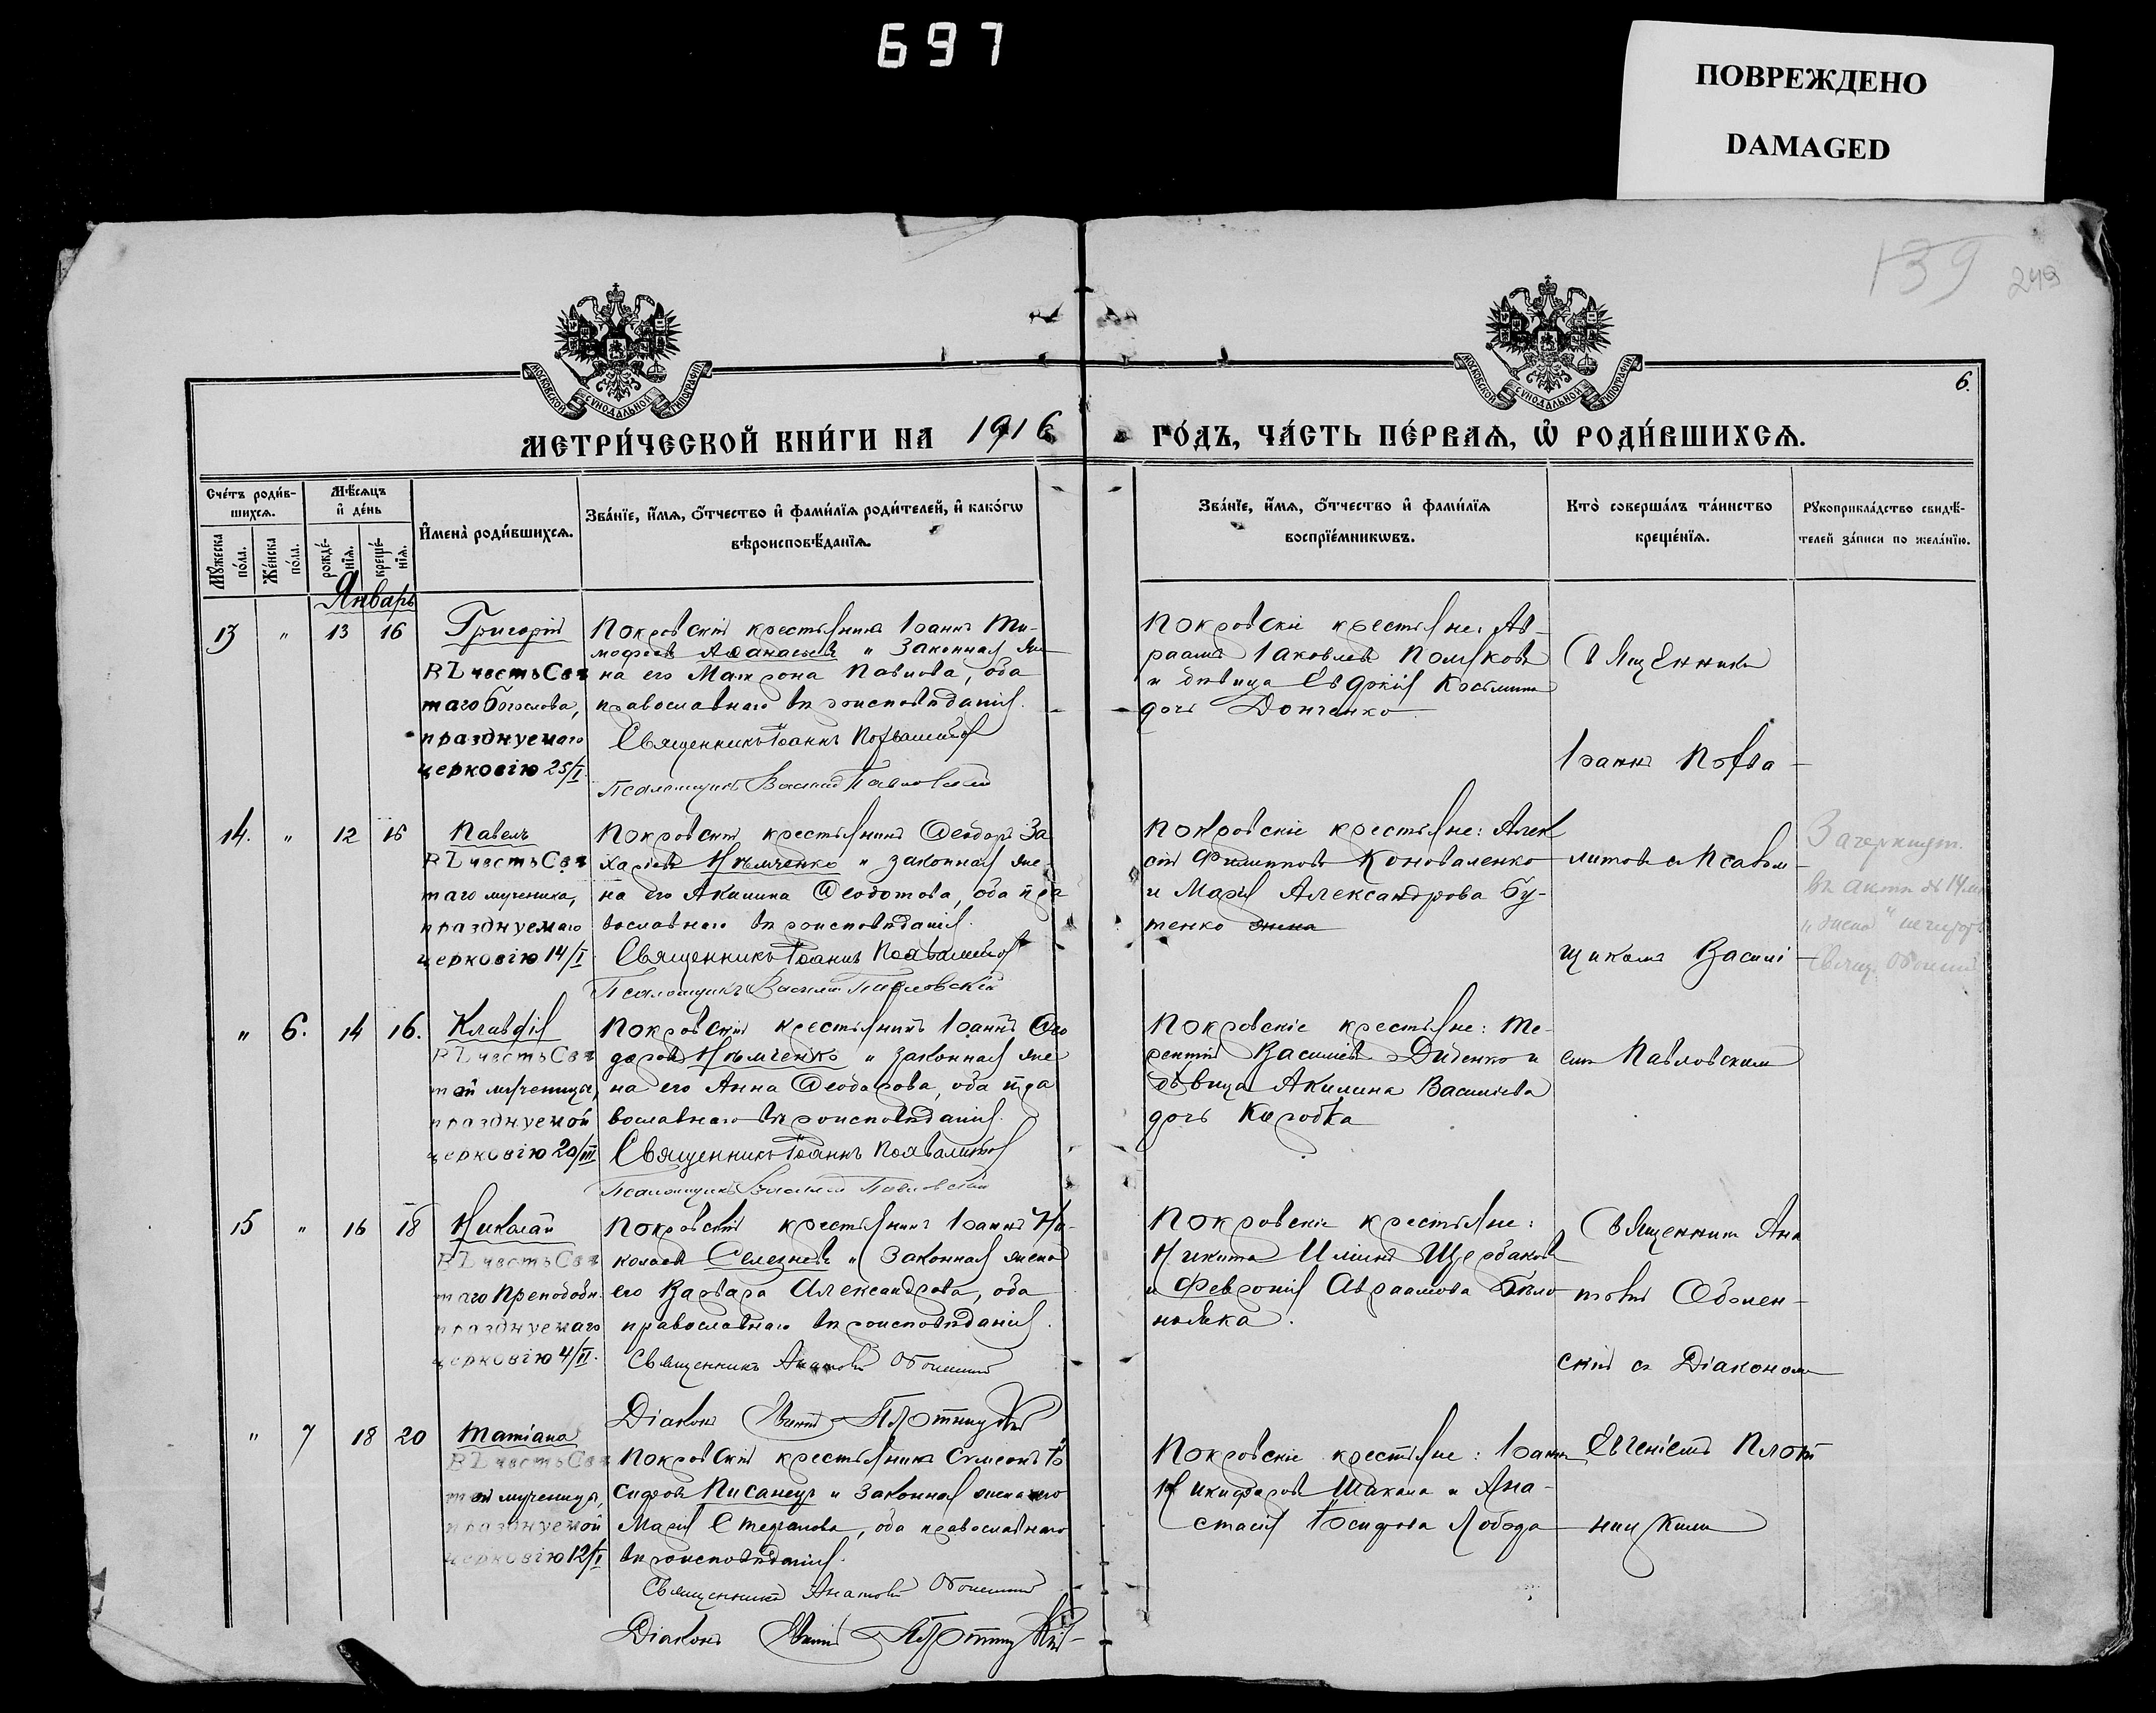 697
ПОВРЕЖДЕНО
DAMAGED
139 249
МОСКОВСКОЙ СѴНОДАЛЬНОЙ ТИПОГРАФІИ
МОСКОВСКОЙ СѴНОДАЛЬНОЙ ТИПОГРАФІИ
6.
МЕТРИ́ЧЕСКОЙ КНИ́ГИ НА 1916 ГО́ДЪ, ЧА́СТЬ ПЕ́РВАѦ, Ѡ҆ РОДИ́ВШИХСѦ.
Сче́тъ роди́в-
шихсѧ.
Мꙋ́жеска по́ла.
Же́нска по́ла.
Мѣ́сѧцъ
и҆ де́нь
рожде́-
нїѧ.
креще́-
нїѧ.
И҆мена̀ роди́вшихсѧ.
Зва́нїе, и҆́мѧ, ѻ҆́тчество и҆ фами́лїѧ роди́телей, и҆ како́гѡ
вѣроисповѣ́данїѧ.
Зва́нїе, и҆́мѧ, ѻ҆́тчество и҆ фами́лїѧ
воспрїе́мникѡвъ.
Кто̀ соверша́лъ та́инство
креще́нїѧ.
Рꙋкоприкла́дство свидѣ́-
телей за́писи по жела́нїю.
Январь
13 " 13 16
Григорій
Въ честь Свя
таго Богослова,
празднуемаго
церковію 25/I
Покровскій крестьянинъ Іоаннъ Ти-
мофеевъ Аѳанасьевъ и законная же
на его Матрона Павлова, оба
православнаго вѣроисповѣданія.
Священникъ Іоаннъ Похвалитовъ
Псаломщикъ Василій Павловскій
Покровскіе крестьяне: Ав-
раамъ Іаковлевъ Поляковъ
и дѣвица Евдокія Косьмина
дочь Донченко
Священникъ
Іоаннъ Похва-
14. " 12 16
Павелъ
Въ честь Свя
таго мученика,
празднуемаго
церковію 14/I
Покровскій крестьянинъ Ѳеодоръ За
харіевъ Нѣмченко и законная же-
на его Акилина Ѳеодотова, оба пра
вославнаго вѣроисповѣданія.
Священникъ Іоаннъ Похвалитовъ
Псаломщикъ Василій Павловскій
Покровскіе крестьяне: Алек
сій Филипповъ Коноваленко
и Марія Александрова Бу-
тенко
литовъ съ Псалом-
щикомъ Василі-
Зачеркнут.
въ актѣ № 14
"жена" не читать
Свящ. Оболенскій
" 6. 14 16.
Клавдія
Въ честь Свя
той мученицы,
празднуемой
церковію 20/III
Покровскій крестьянинъ Іоаннъ Ѳео
доровъ Нѣмченко и законная же
на его Анна Ѳеодорова, оба пра
вославнаго вѣроисповѣданія.
Священникъ Іоаннъ Похвалитовъ
Псаломщикъ Василій Павловскій
Покровскіе крестьяне: Те-
рентій Василіевъ Диденко и
дѣвица Акилина Василіева
дочь Коробка
емъ Павловскимъ
15 " 16 18
Николай
Въ честь Свя
таго Преподобн.
празднуемаго
церковію 4/II.
Покровскій крестьянинъ Іоаннъ Ни-
колаевъ Селезневъ и законная жена
его Варвара Александрова, оба
православнаго вѣроисповѣданія.
Священникъ Анатолій Оболенскій
Діаконъ Евгеній Плотницкій
Покровскіе крестьяне:
Никита Иліинъ Щербаковъ
и Февронія Авраамова Бѣло
ножка.
Священникъ Ана
толій Оболен-
скій съ Діакономъ
" 7 18 20
Татіана
Въ честь Свя
той мученицы,
празднуемой
церковію 12/I
Покровскій крестьянинъ Сѵмеонъ Іо
сифовъ Писанецъ и законная жена его
Марія Стефанова, оба православнаго
вѣроисповѣданія.
Священникъ Анатолій Оболенскій
Діаконъ Евгеній Плотницкій
Покровскіе крестьяне: Іоаннъ
Никифоровъ Шакала и Ана-
стасія Іосифова Лобода
Евгеніемъ Плот
ницкимъ